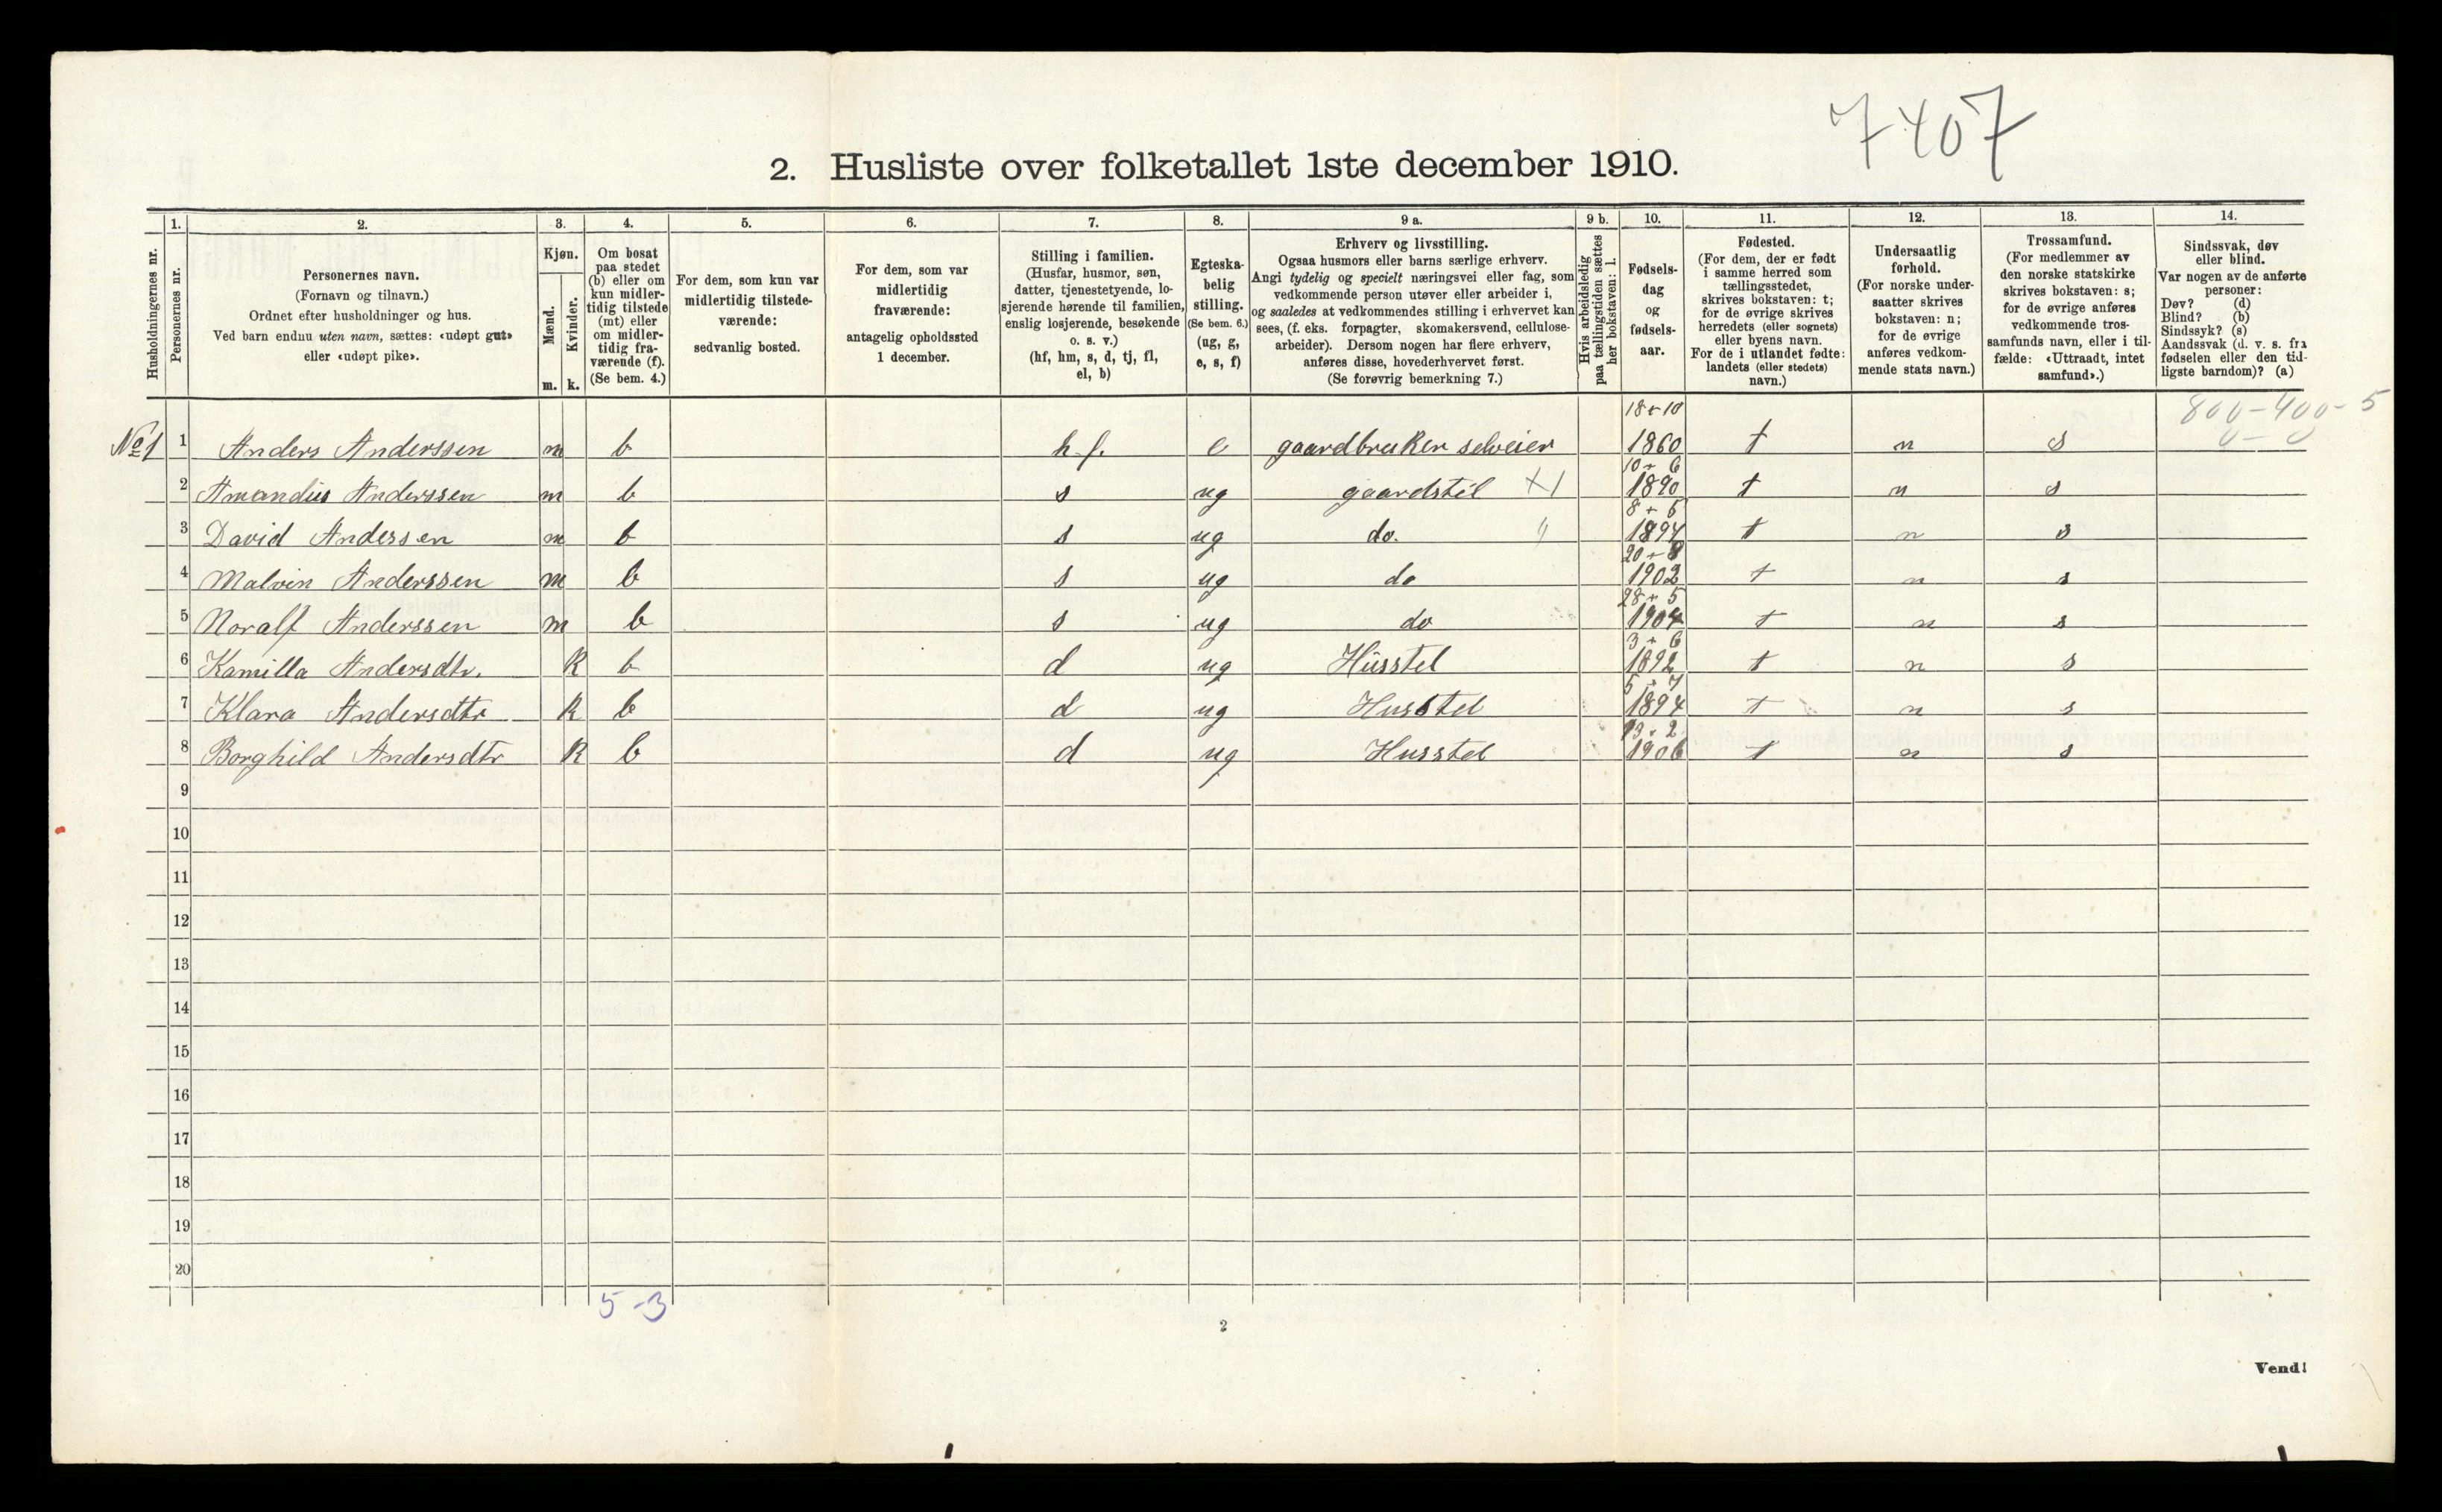 7407
2. Husliste over folketallet 1ste december 1910.
Husholdningernes nr.
1. Personernes nr.
2. Personernes navn.
(Fornavn og tilnavn.)
Ordnet efter husholdninger og hus.
Ved barn endnu uten navn, sættes: «udøpt gut»
eller «udøpt pike».
3. Kjøn.
Mænd. m.
Kvinder. k.
4. Om bosat
paa stedet
(b) eller om
kun midler-
tidig tilstede
(mt) eller
om midler-
tidig fra-
værende (f).
(Se bem. 4.)
5. For dem, som kun var
midlertidig tilstede-
værende:
sedvanlig bosted.
6. For dem, som var
midlertidig
fraværende:
antagelig opholdssted
1 december.
7. Stilling i familien.
(Husfar, husmor, søn,
datter, tjenestetyende, lo-
sjerende hørende til familien,
enslig losjerende, besøkende
o. s. v.)
(hf, hm, s, d, tj, fl,
el, b)
8. Egteska-
belig
stilling.
(Se bem. 6.)
(ug, g,
e, s, f)
9 a. Erhverv og livsstilling.
Ogsaa husmors eller barns særlige erhverv.
Angi tydelig og specielt næringsvei eller fag, som
vedkommende person utøver eller arbeider i,
og saaledes at vedkommendes stilling i erhvervet kan
sees, (f. eks. forpagter, skomakersvend, cellulose-
arbeider). Dersom nogen har flere erhverv,
anføres disse, hovederhvervet først.
(Se forøvrig bemerkning 7.)
9 b. Hvis arbeidsledig
paa tællingstiden sættes
her bokstaven: l.
10. Fødsels-
dag
og
fødsels-
aar.
11. Fødested.
(For dem, der er født
i samme herred som
tællingsstedet,
skrives bokstaven: t;
for de øvrige skrives
herredets (eller sognets)
eller byens navn.
For de i utlandet fødte:
landets (eller stedets)
navn.)
12. Undersaatlig
forhold.
(For norske under-
saatter skrives
bokstaven: n;
for de øvrige
anføres vedkom-
mende stats navn.)
13. Trossamfund.
(For medlemmer av
den norske statskirke
skrives bokstaven: s;
for de øvrige anføres
vedkommende tros-
samfunds navn, eller i til-
fælde: «Uttraadt, intet
samfund».)
14. Sindssvak, døv
eller blind.
Var nogen av de anførte
personer:
Døv? (d)
Blind? (b)
Sindssyk? (s)
Aandssvak (d. v. s. fra
fødselen eller den tid-
ligste barndom)? (a)
800-400-5
0-0
No 1 1 Anders Anderssen m b h.f. e gaardbruker selveier 18+10 1860 t n s
2 Amandus Anderssen m b s ug gaardstel X1 10+6 1890 t n s
3 David Anderssen m b s ug do. 8+5 1894 t n s
4 Malvin Anderssen m b s ug do 20+8 1902 t n s
5 Noralf Anderssen m b s ug do 28+5 1904 t n s
6 Kamilla Andersdtr. K b d ug Husstel 3+6 1892 t n s
7 Klara Andersdtr K b d ug Husstel 5+7 1894 t n s
8 Borghild Andersdtr K b d ug Husstel 13+2 1906 t n s
9
10
11
12
13
14
15
16
17
18
19
20
5-3
2
Vend!